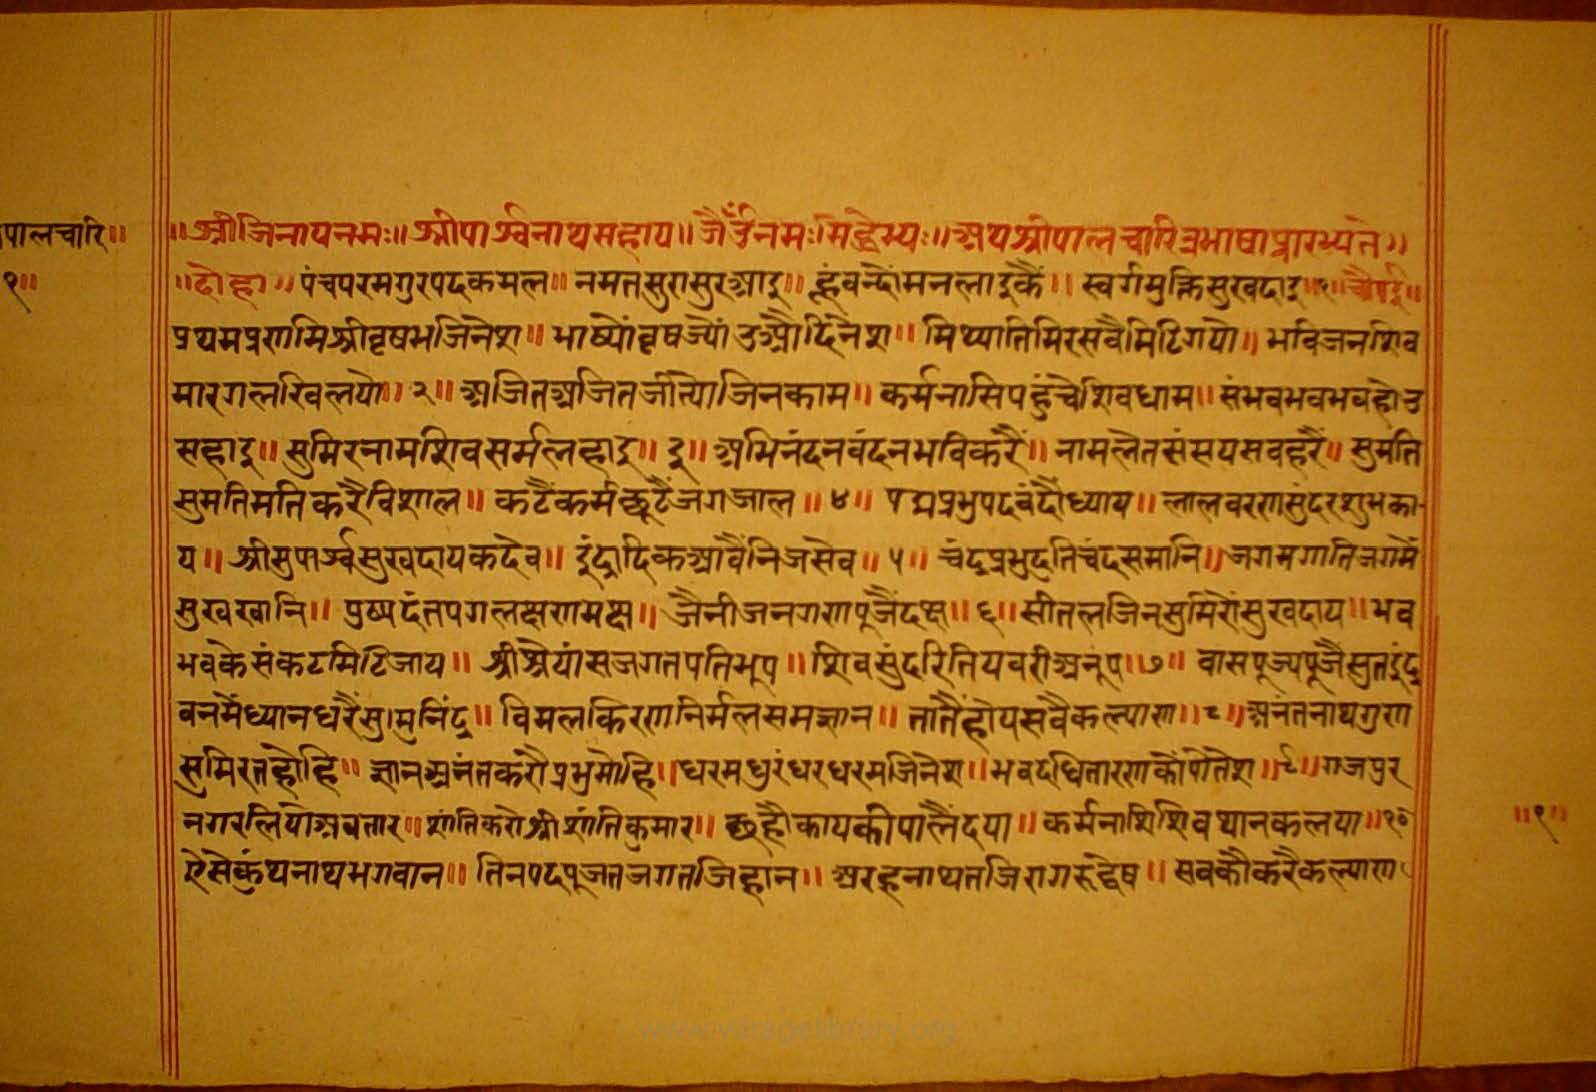 पालचारि॥
१॥
॥श्रीजिनायनमः॥श्रीपार्श्वनाथसहाय॥ॐनमःसिद्धेभ्यः॥अथश्रीपालचारित्रभाषाप्रारभ्यते॥
॥दोहा॥पंचपरमगुरपदकमल॥नमतसुरासुरआइ॥हूंवन्दौंमनलाइकैं॥स्वर्गमुक्तिसुखदाइ॥१॥चौपई॥
प्रथमप्रणमिश्रीवृषभजिनेश॥भाष्योंवृषज्योंउग्यौदिनेश॥मिथ्यातिमिरसवैमिटिगयो॥भविजनशिव
मारगलखिलयौ॥२॥अजितअजितजीत्यौजिनकाम॥कर्मनासिपहुंचेशिवधाम॥संभवभवभवहोउ
सहाइ॥सुमिरनामशिवसर्मलहाइ॥३॥अभिनंदनवंदनभविकरैं॥नामलैतसंसयसवहरैं॥सुमति
सुमतिमतिकरैविशाल॥कटैंकर्मछूटैंजगजाल॥४॥पद्मप्रभुपदवंदौंध्याय॥लालवरणसुंदरशुभका
य॥श्रीसुपार्श्वसुखदायकदेव॥इंद्रादिकआवैंनिजसेव॥५॥चंद्रप्रभुदुतिचंदसमानि॥जगमगातिजगमें
सुखखानि॥पुष्पदंतपगलक्षणमक्ष॥जैनीजनगणपूजैंदक्ष॥६॥सीतलजिनसुमिरौंसुखदाय॥भव
भवकेसंकटमिटिजाय॥श्रीश्रेयांसजगतपतिभूप॥शिवसुंदरितियवरीअनूप॥७॥वासपूज्यपूजैसुतइंद्र
वनमेंध्यानधरैंसुमुनिंद्र॥विमलकिरणनिर्मलसमज्ञान॥तातैंहोयसवैकल्याण॥८॥अनंतनाथगुण
सुमिरतहौहि॥ज्ञानअनंतकरौप्रभुमोहि॥धरमधुरंधरधरमजिनेश॥भवदधितारणकौंपोतेश॥९॥गजपुर
नगरलियोअवतार॥शांतिकरोश्रीशांतिकुमार॥छहौकायकीपालैंदया॥कर्मनाशिशिवथानकलया॥१०
ऐसेकुंथनाथभगवान॥तिनपदपूजतजगतजिहान॥अरहनाथतजिरागरूद्वेष॥सवकौकरैकल्याण
॥१॥
www.vitragelibrary.org